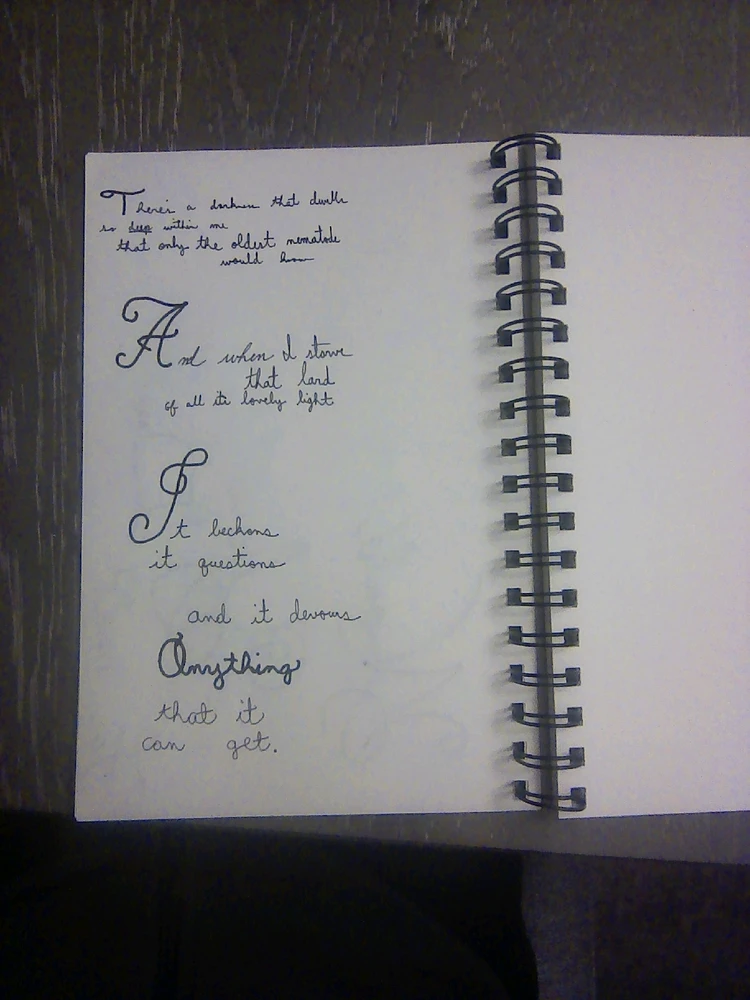 There's a darkness that dwells
so deep within me
that only the oldest nematode
would know
And when I starve
that land
of all its lovely light
It beckons
it questions
and it devours
Anything
that it
can get.